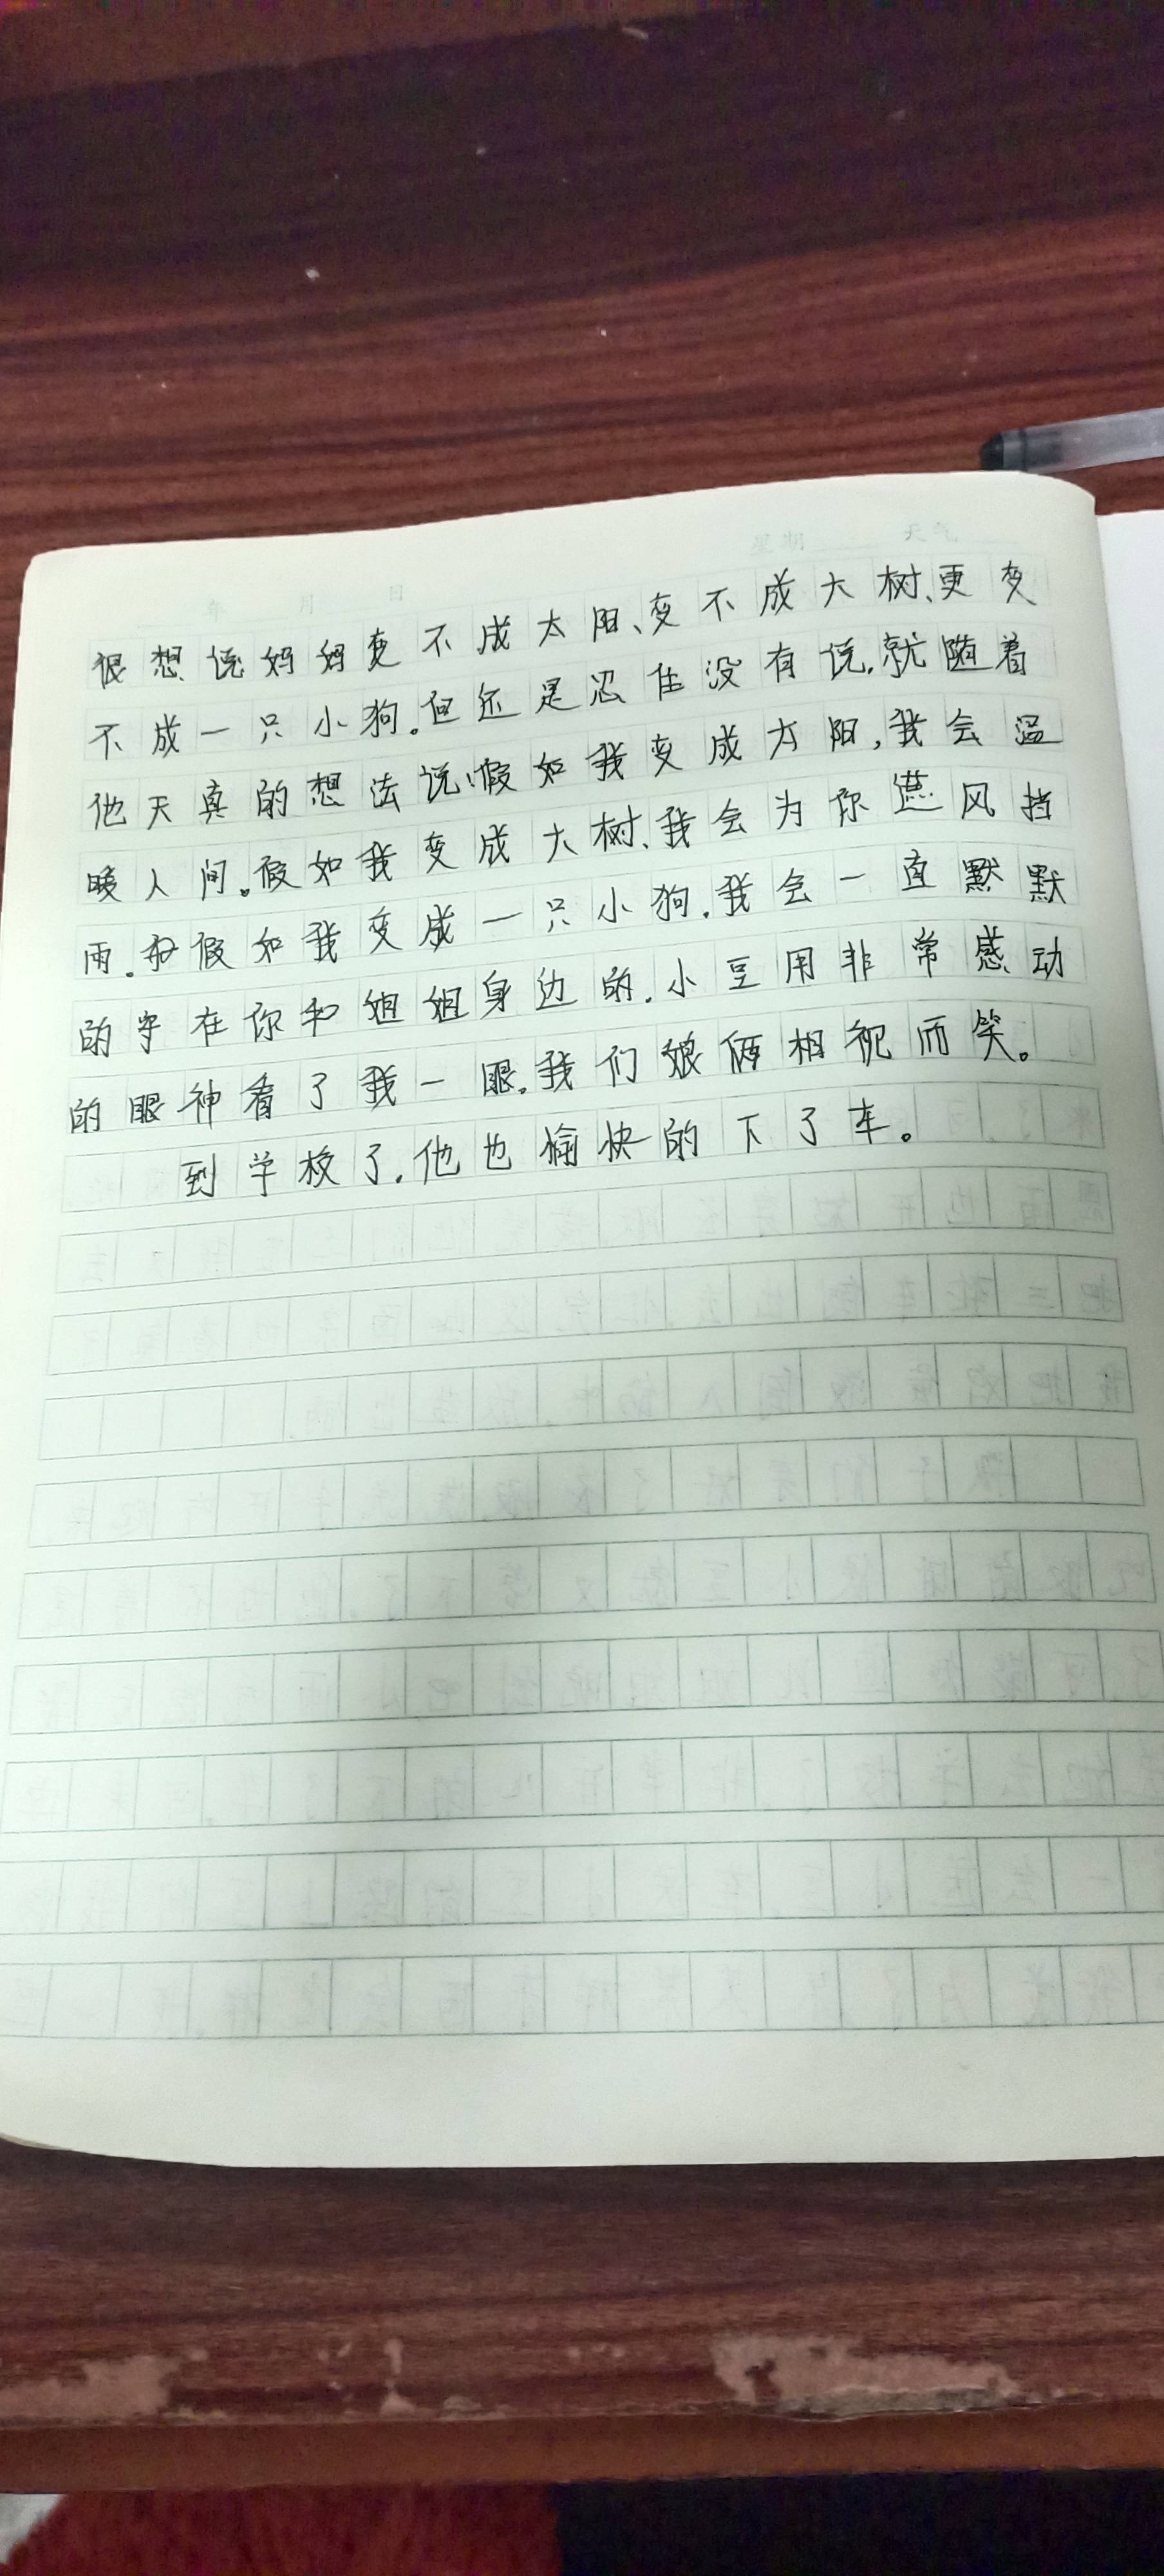 年 月 日 星期 天气
很想说妈妈变不成太阳、变不成大树、更变
不成一只小狗。但还是忍住没有说,就随着
他天真的想法说:假如我变成太阳,我会温
暖人间。假如我变成大树、我会为你遮风挡
雨。假如我变成一只小狗.我会一直默默
的守在你和姐姐身边的.小豆用非常感动
的眼神看了我一眼.我们娘俩相视而笑。
到学校了.他也愉快的下了车。